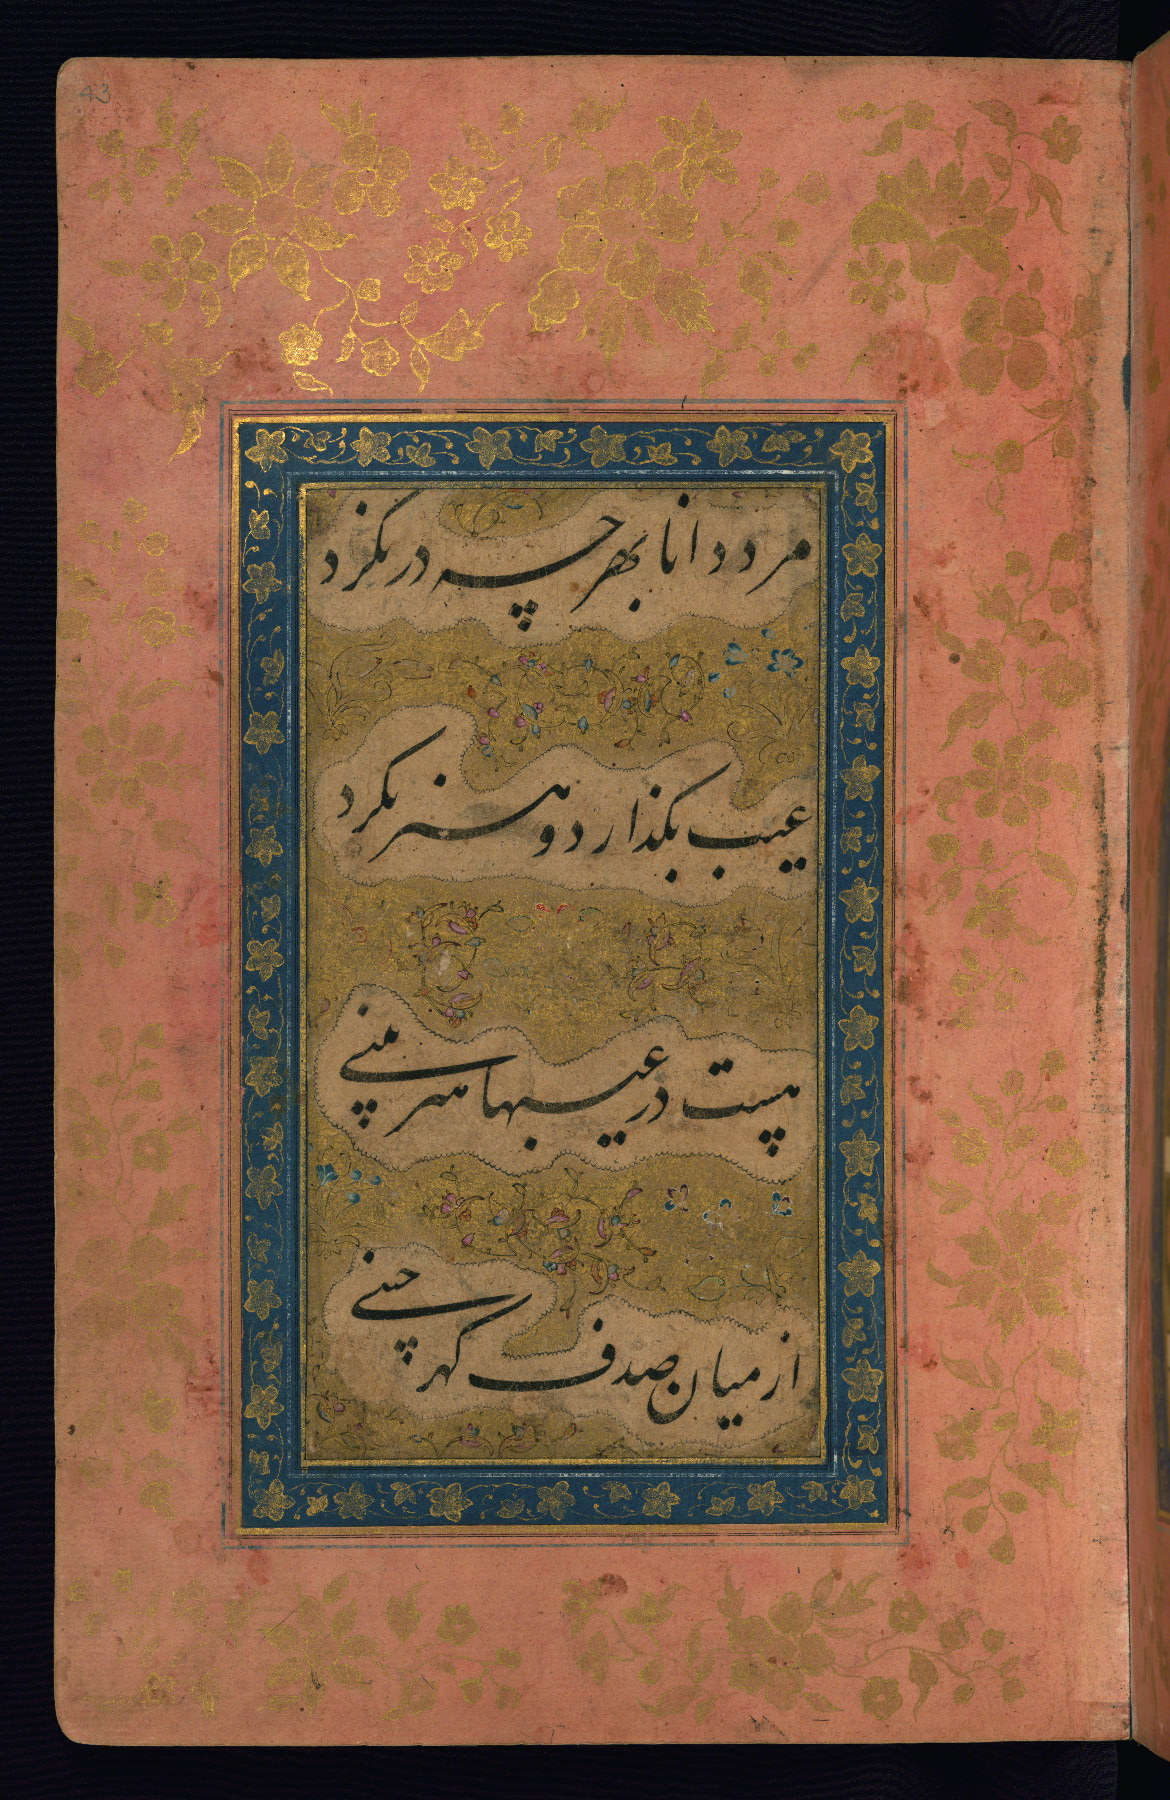 43
مرد دانا بهر چه درنگرد
عیب بگذارد و هنر نگرد
چیست در عیبها هنر بینی
از میان صدف گهر چینی